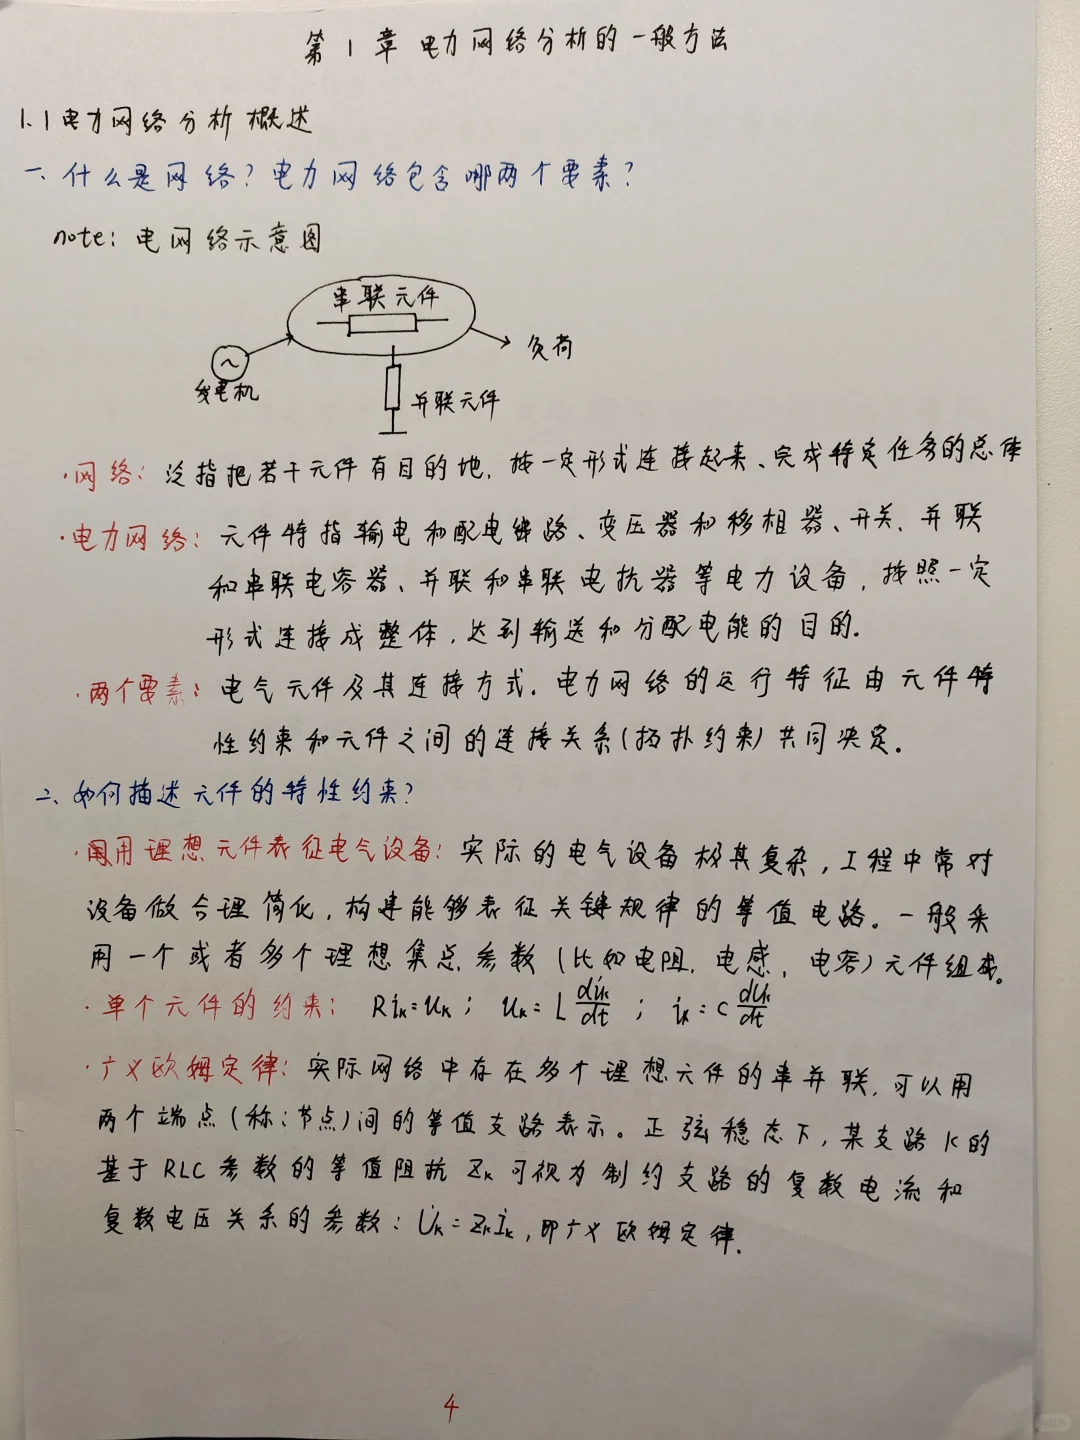 第1章 电力网络分析的一般方法
1.1 电力网络分析概述
一、什么是网络?电力网络包含哪两个要素?
note: 电网络示意图
串联元件
负荷
发电机
并联元件
·网络: 泛指把若干元件有目的地,按一定形式连接起来、完成特定任务的总体
·电力网络: 元件特指输电和配电线路、变压器和移相器、开关、并联
和串联电容器、并联和串联电抗器等电力设备,按照一定
形式连接成整体,达到输送和分配电能的目的.
·两个要素: 电气元件及其连接方式.电力网络的运行特征由元件特
性约束和元件之间的连接关系(拓扑约束)共同决定.
二、如何描述元件的特性约束?
·用理想元件表征电气设备: 实际的电气设备极其复杂,工程中常对
设备做合理简化,构建能够表征关键规律的等值电路。一般采
用一个或者多个理想集总参数(比如电阻,电感,电容)元件组成。
·单个元件的约束: Riₖ=uₖ; uₖ=L diₖ/dt; iₖ=C duₖ/dt
·广义欧姆定律: 实际网络中存在多个理想元件的串并联,可以用
两个端点(称:节点)间的等值支路表示。正弦稳态下,某支路K的
基于RLC参数的等值阻抗Zₖ可视为制约支路的复数电流和
复数电压关系的参数: U̇ₖ=Zₖİₖ,即广义欧姆定律.
4